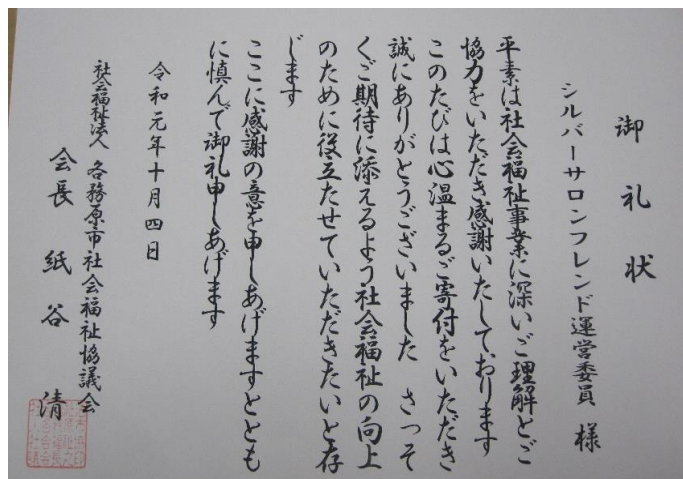 御礼状
シルバーサロンフレンド運営委員 様
平素は社会福祉事業に深いご理解とご
協力をいただき感謝いたしております
このたびは心温まるご寄付をいただき
誠にありがとうございました さっそ
くご期待に添えるよう社会福祉の向上
のために役立たせていただきたいと存
じます
ここに感謝の意を申しあげますととも
に慎んで御礼申しあげます
令和元年十月四日
社会福祉法人 各務原市社会福祉協議会
会長 紙谷 清